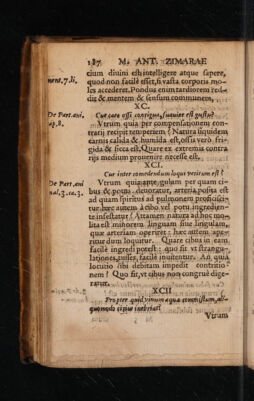 187 M. ANT. ZIMARAE
cium divini est: intelligere atque sapere,
ment.7.li. quod non facilè esset, si vasta corporis mo-
les accederet. Pondus enim tardiorem red-
dit & mentem & sensum communem.
XC.
De Part.ani. Cur caro ossi contigua, suavior est gustu?
cap.8. Vtrum quia per compensationem con-
trarii recipit temperiem? Natura siquidem
carnis calida & humida est, ossis verò fri-
gida & sicca est. Quare ex extremis contra
riis medium provenire necesse est.
XCI.
Cur inter comedendum loqui vetitum est?
De Part.ani Vtrum quia ante gulam per quam ci-
mal.3.ca.3. bus & potus devoratur, arteria posita est
ad quam spiritus ad pulmonem proficisci-
tur hæc autem à cibo vel potu ingrediente
infestatur? Attamen natura ad hoc mo-
lita est minorem linguam sive lingulam,
quæ arteriam operiret: hæc autem ape-
ritur dum loquitur. Quare cibus in eam
facilè ingredi potest: quo fit vt strangu-
lationes, tusses, facilè inuitentur. An, quia
locutio sibi debitam impedit contritio-
nem? Quo fit, vt cibus non congruè dige-
ratur.
XCII
Propter quid vinum aqua commistum,
citius inebriat?
Vtrum